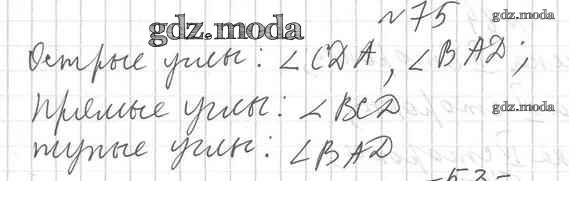 №75
gdz.moda
gdz.moda
Острые углы: ∠CDA, ∠BAD;
Прямые углы: ∠BCD
gdz.moda
тупые углы: ∠BAD